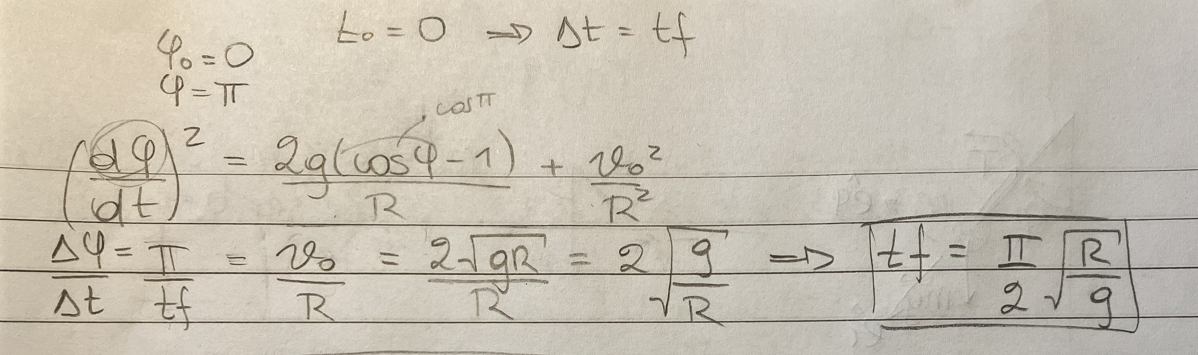 t₀ = 0 ⟹ Δt = tf
φ₀ = 0
φ = π
cosπ
(dφ/dt)² = 2g(cosφ - 1)/R + v₀²/R²
Δφ/Δt = π/tf = v₀/R = 2√(gR)/R = 2√(g/R) ⟹ tf = π/2 √(R/g)